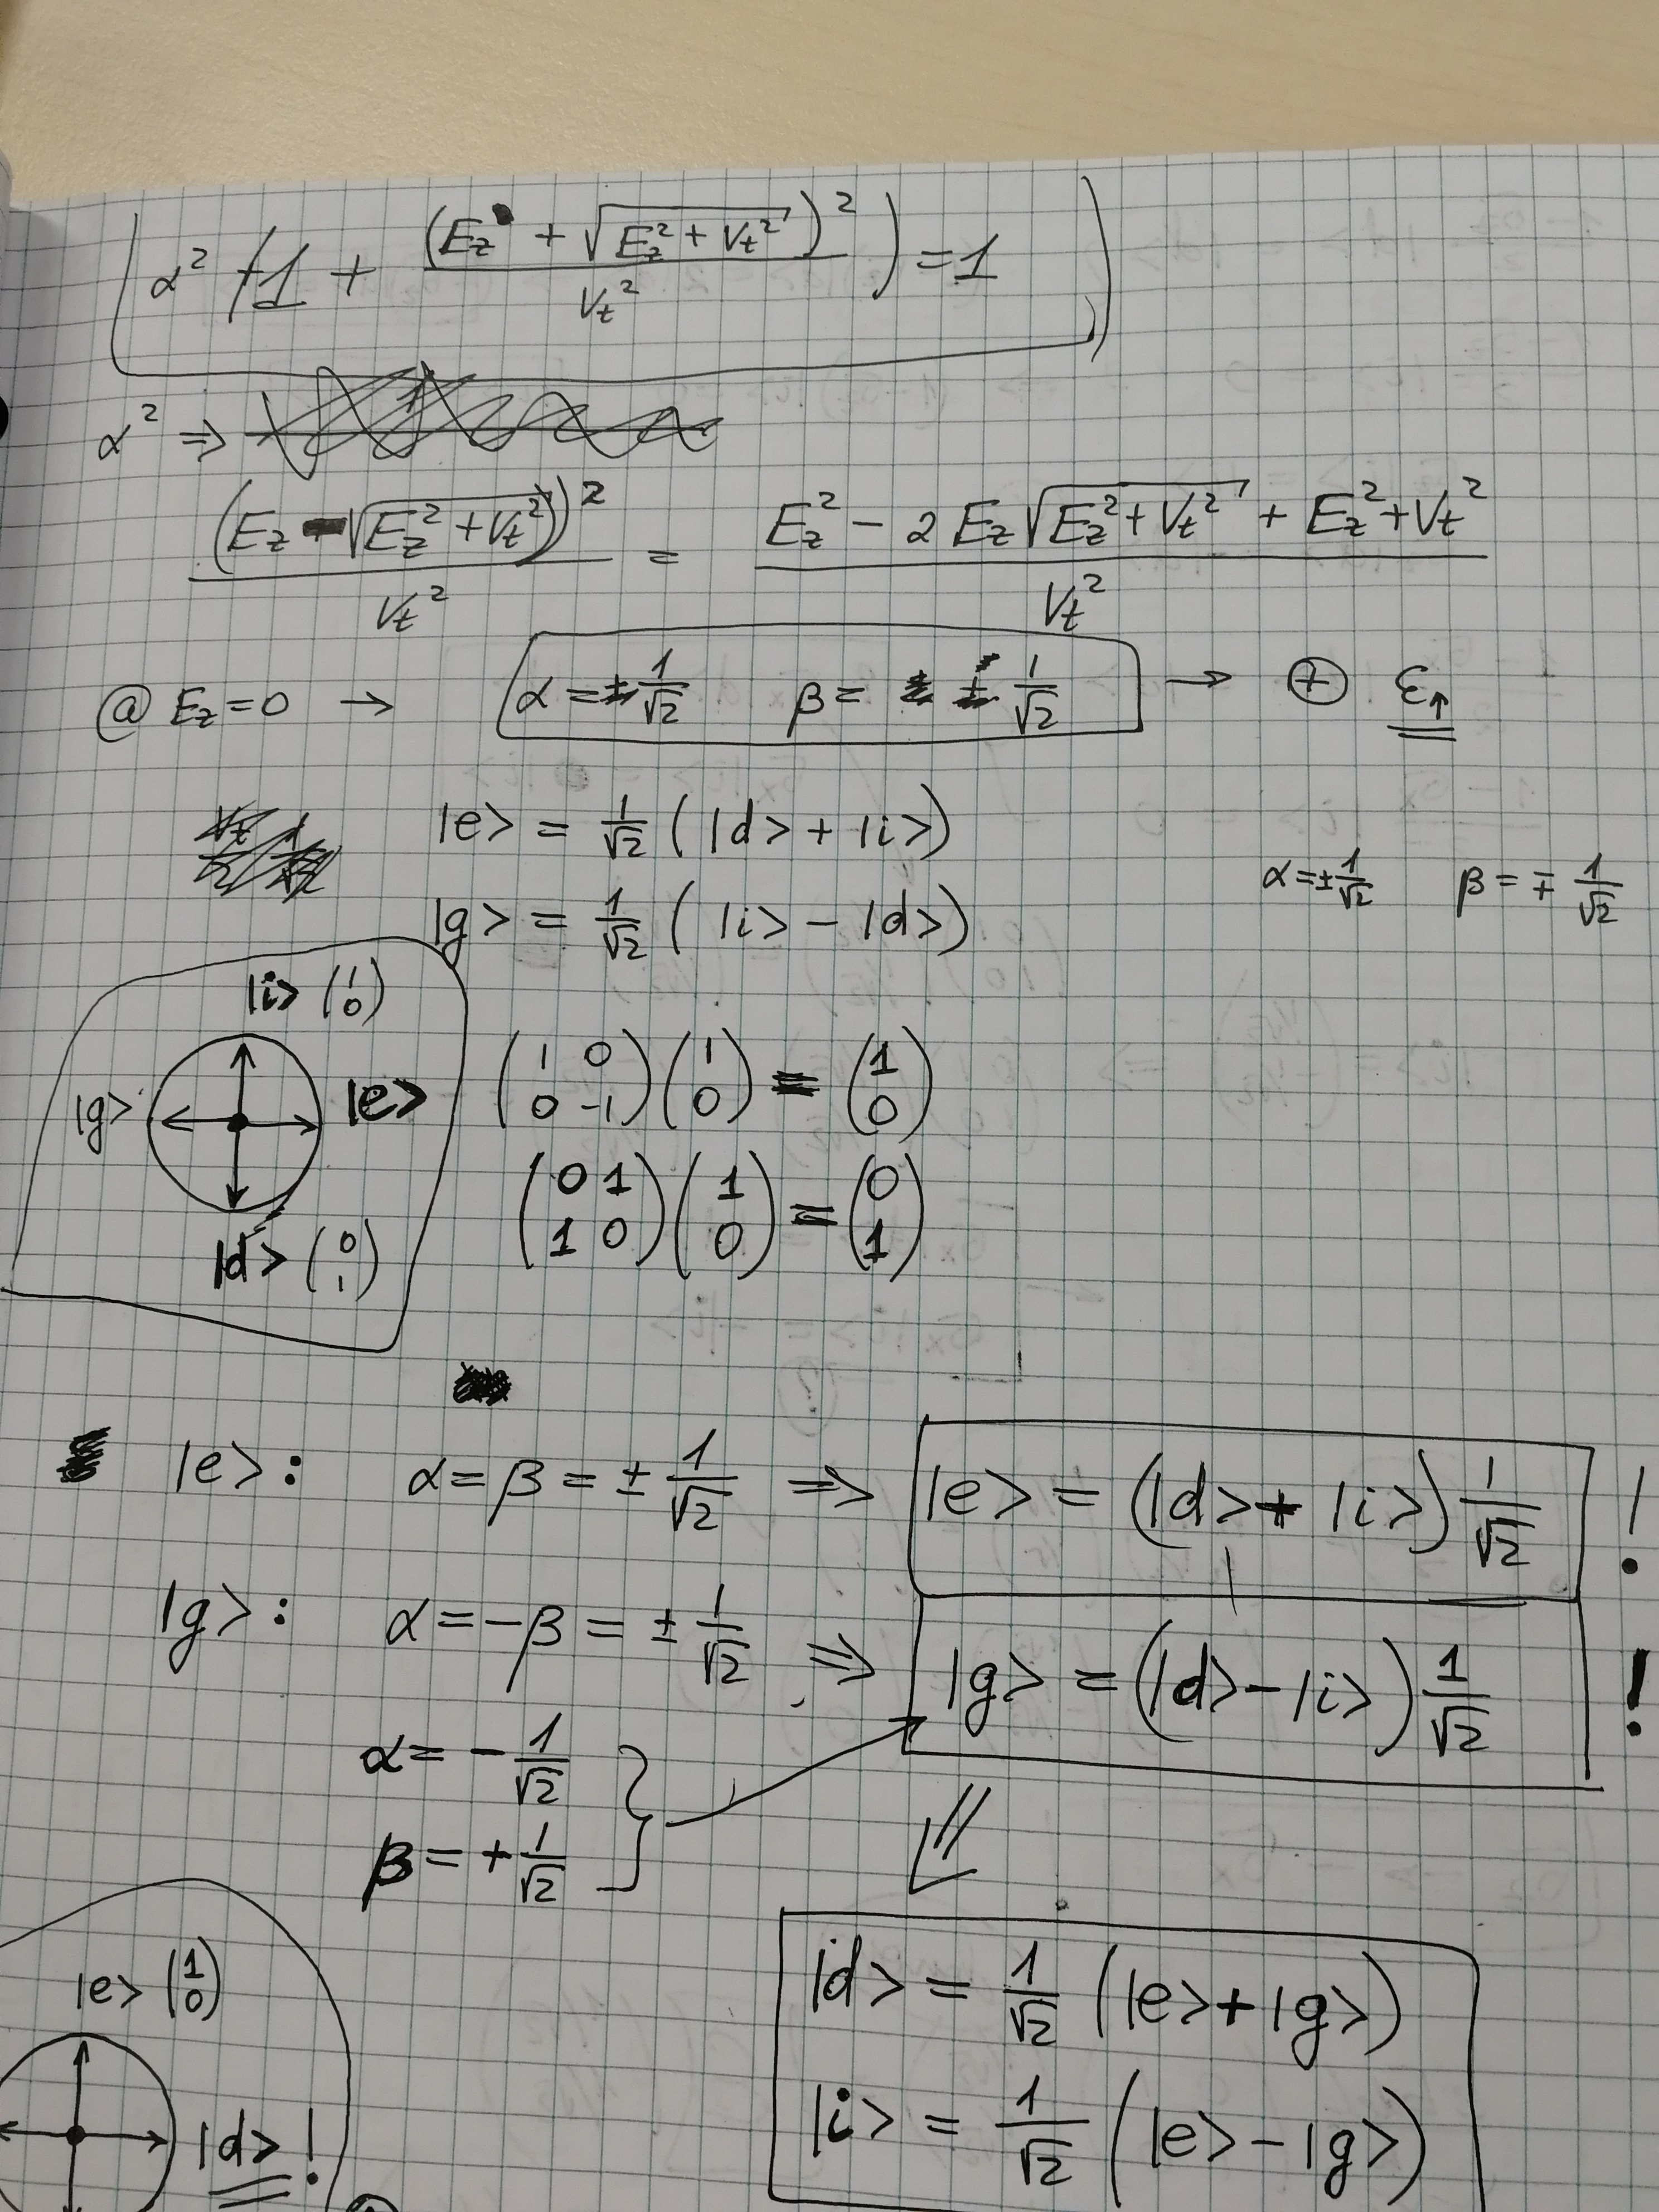 α² (1 + (E_z + √(E_z² + V_t²))² / V_t²) = 1
α² ⇒
(E_z - √(E_z² + V_t²))² / V_t² = (E_z² - 2 E_z √(E_z² + V_t²) + E_z² + V_t²) / V_t²
@ E_z = 0 → α = ± 1/√2 β = ± 1/√2 → ⊕ ε↑
|e> = 1/√2 ( |d> + |i>)
α = ± 1/√2 β = ∓ 1/√2
|g> = 1/√2 ( |i> - |d>)
|i> (1 0)
|g> |e>
|d> (0 1)
(1 0 0 -1) (1 0) = (1 0)
(0 1 1 0) (1 0) = (0 1)
|e> : α = β = ± 1/√2 ⇒ |e> = (|d> + |i>) 1/√2 !
|g> : α = -β = ± 1/√2 ⇒ |g> = (|d> - |i>) 1/√2 !
α = - 1/√2
β = + 1/√2
|e> (1 0)
|d> !
|d> = 1/√2 (|e> + |g>)
|i> = 1/√2 (|e> - |g>)